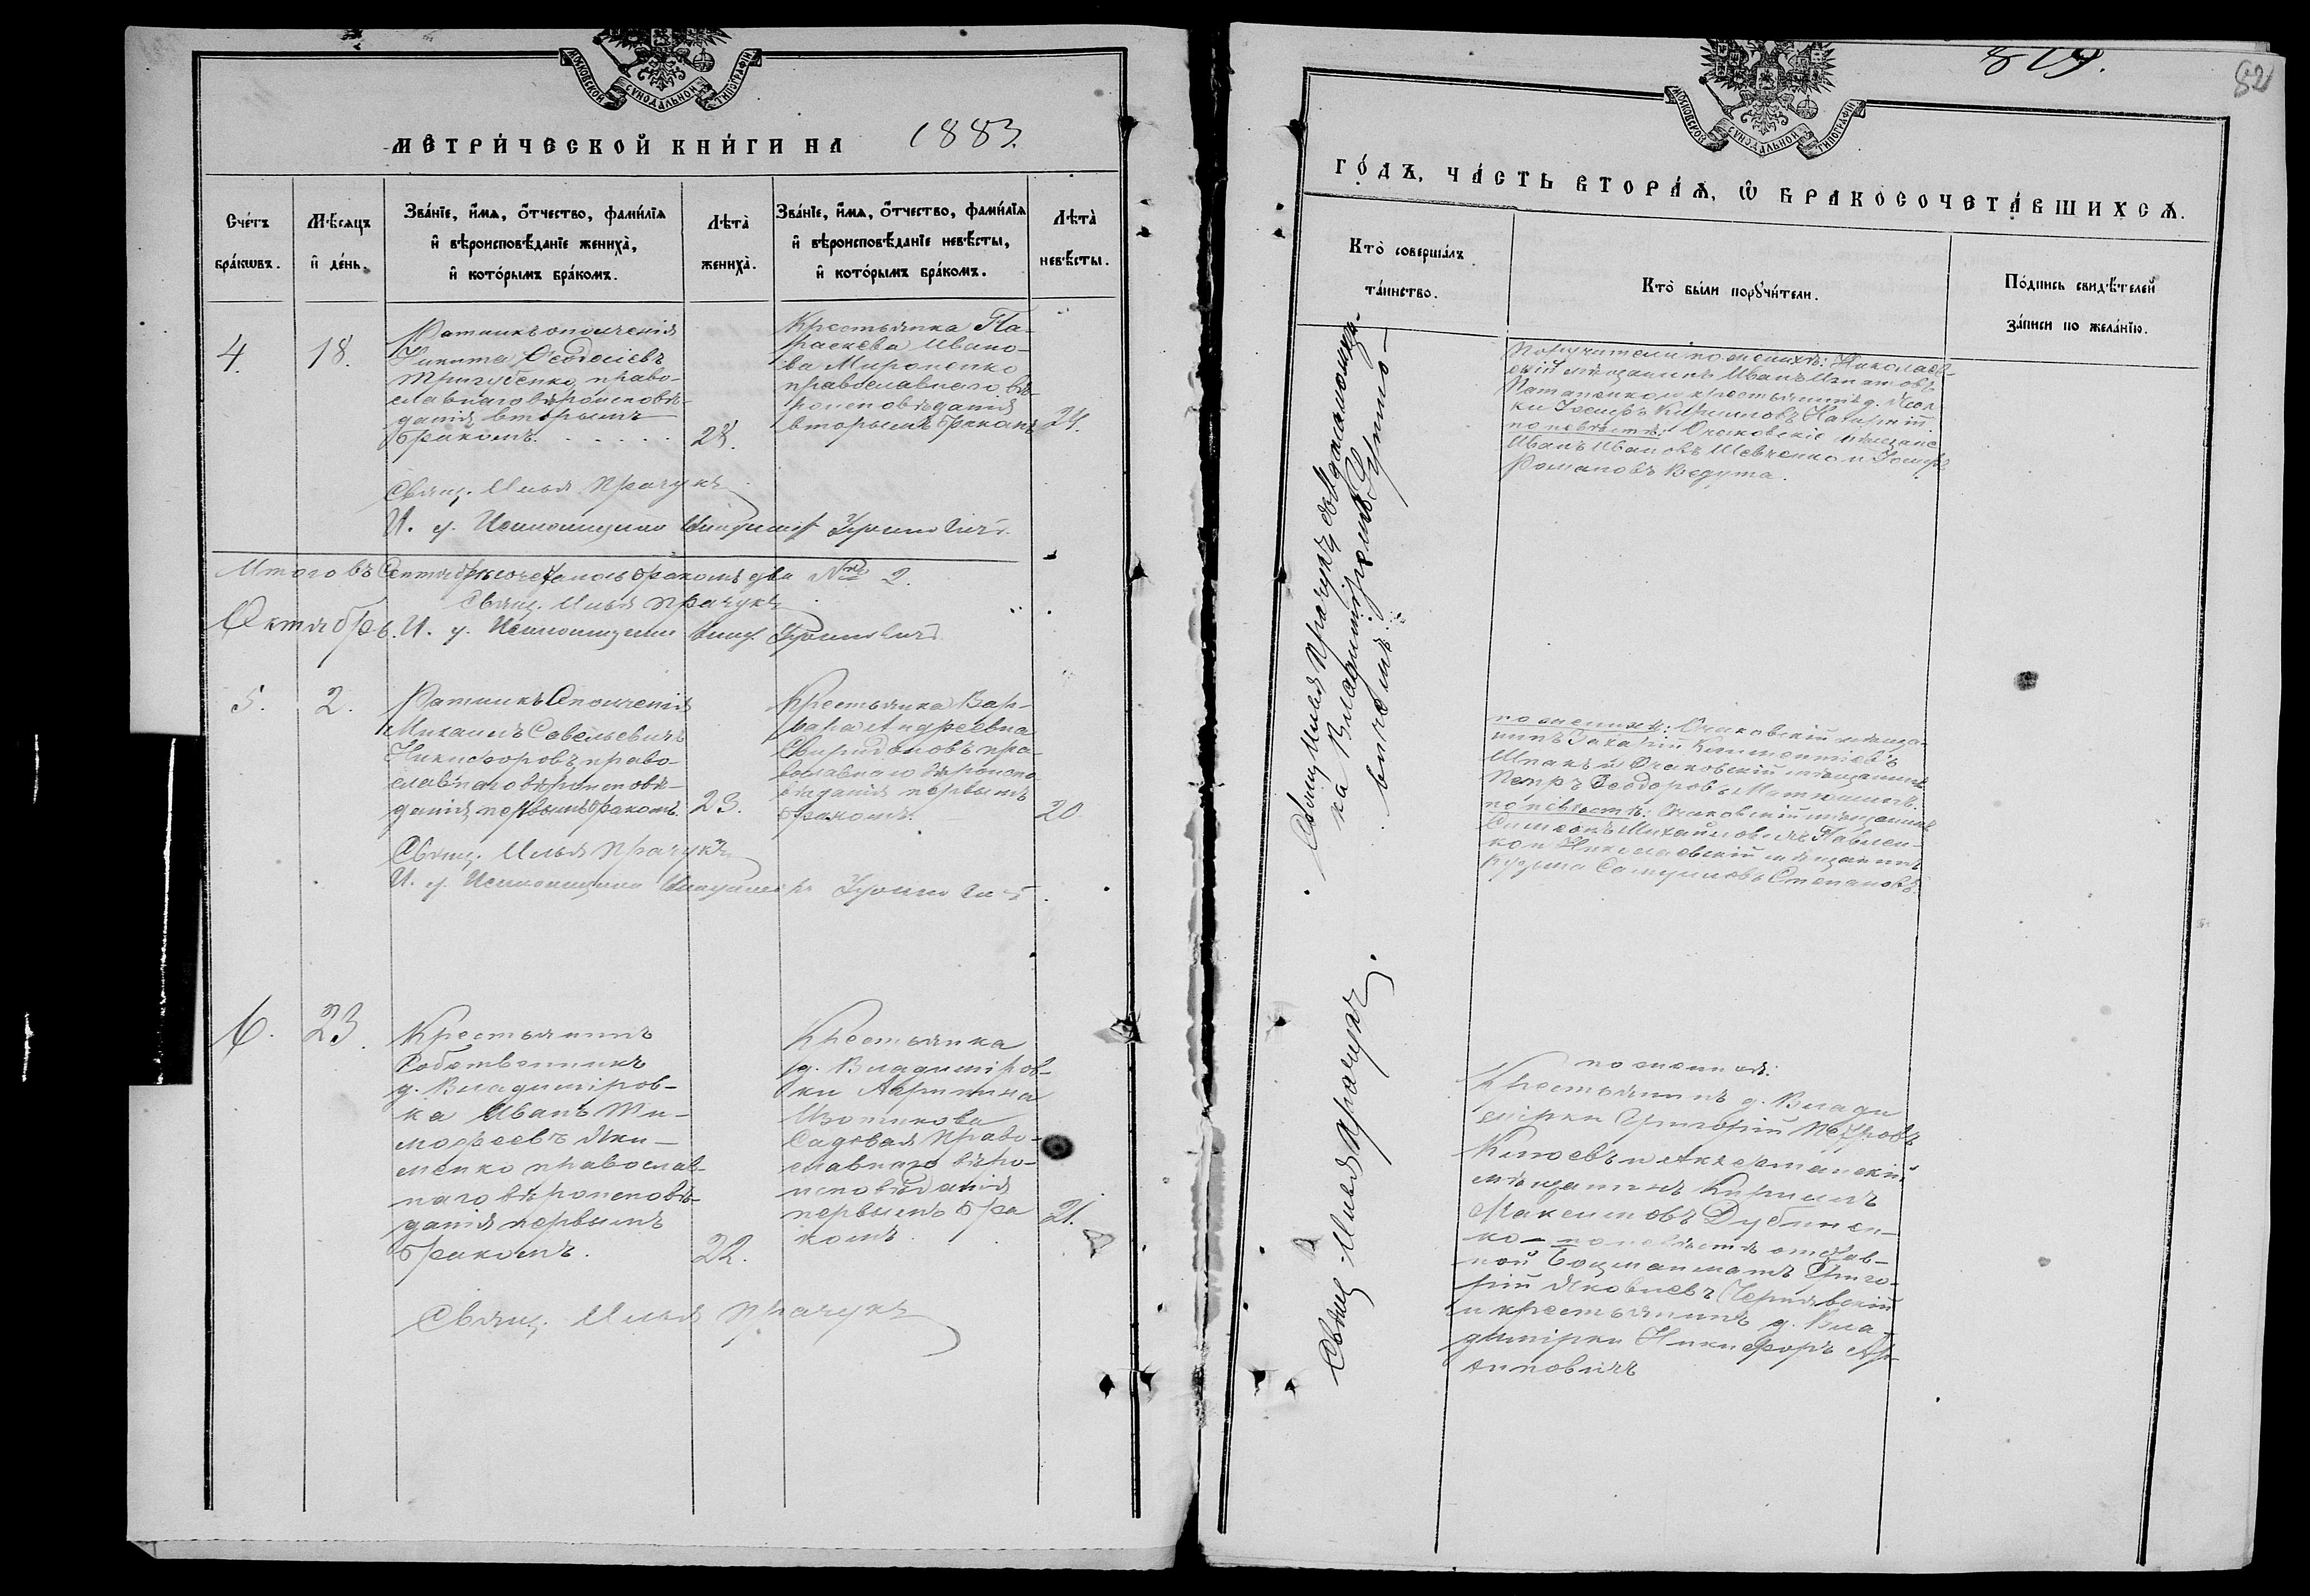 МОСКОВСКОЙ СѴНОДАЛЬНОЙ ТИПОГРАФІИ
МЕТРИ́ЧЕСКОЙ КНИ́ГИ НА 1883.
Сче́тъ бра́кωвъ.
Мѣ́сяцъ и҆ де́нь.
Зва́нїе, и҆́мѧ, ѻ҆́тчество, фами́лїѧ
и҆ вѣроисповѣ́данїе жениха̀,
и҆ кото́рымъ бра́комъ.
Лѣта̀ жениха̀.
Зва́нїе, и҆́мѧ, ѻ҆́тчество, фами́лїѧ
и҆ вѣроисповѣ́данїе невѣ́сты,
и҆ кото́рымъ бра́комъ.
Лѣта̀ невѣ́сты.
4.
18.
Ратникъ ополченія
Никита Ѳеодосіевъ
Тригубенко право-
славнаго вѣроисповѣ-
данія вторымъ
бракомъ.
28.
Крестьянка Па-
раскева Ивано-
ва Мироненко
православнаго вѣ-
роисповѣданія
вторымъ бракомъ
24.
Свящ. Илья Прачукъ
И. д. Псаломщика Владиміръ
Итого въ Сентябрѣ бракомъ два № 2.
Свящ. Илья Прачукъ
Октябрь.
И. д. Псаломщика Влад.
5.
2.
Ратникъ Ополченія
Михаилъ Савельевичъ
Никифоровъ право-
славнаго вѣроисповѣ-
данія первымъ бракомъ.
23.
Крестьянка Вар-
вара Андреевна
Свиридоновъ пра-
вославнаго вѣроиспо-
вѣданія первымъ
бракомъ.
20
Свящ. Илья Прачукъ
И. д. Псаломщика Владиміръ
6.
23.
Крестьянинъ
Собственникъ
д. Владиміров-
ка Иванъ Ти-
моѳеевъ Яки-
менко православ-
наго вѣроисповѣ-
данія первымъ
бракомъ.
22.
Крестьянка
д. Владиміров-
ки Агрипина
Изотикова
Садовая право-
славнаго вѣро-
исповѣданія
первымъ бра
комъ.
21.
Свящ. Илья Прачукъ
819.
82
МОСКОВСКОЙ СѴНОДАЛЬНОЙ ТИПОГРАФІИ
ГО́ДЪ, ЧА́СТЬ ВТОРА́Ѧ, Ѡ҆ БРАКОСОЧЕТА́ВШИХСѦ.
Кто̀ соверша́лъ
та́инство.
Кто̀ бы́ли порꙋчи́тели.
По́дпись свидѣ́телей
за́писи по жела́нїю.
Свящ. Илья Прачукъ съ псаломщи-
ка Владиміромъ
вичемъ
Поручители по женихѣ: Николаев-
скій мѣщанинъ Иванъ Игнатовъ
ки Іосифъ Кириловъ
по невѣстѣ: Очаковскіе мѣщане
Иванъ Ивановъ Шевченко и Іосифъ
Романовъ Ведута.
по женихѣ: Очаковскій мѣща-
нинъ Захарій Климентіевъ
Шпакъ и Очаковскій мѣщанинъ
Петръ Ѳеодоровъ
по невѣстѣ: Очаковскій мѣщанинъ
Симеонъ Михайловичъ Павлен-
ко и Николаевскій мѣщанинъ
Самуиловъ Степановъ.
Свящ. Илья Прачукъ.
по женихѣ:
Крестьянинъ д. Влади
мірки Григорій Петровъ
и Аккерманскій
мѣщанинъ Кирилъ
Максимовъ Дубинен-
ко – по невѣстѣ отстав-
ной Боцманматъ Григо-
рій Яковлевъ Чернявскій
и крестьянинъ д. Вла-
димірки Никифоръ Ар-